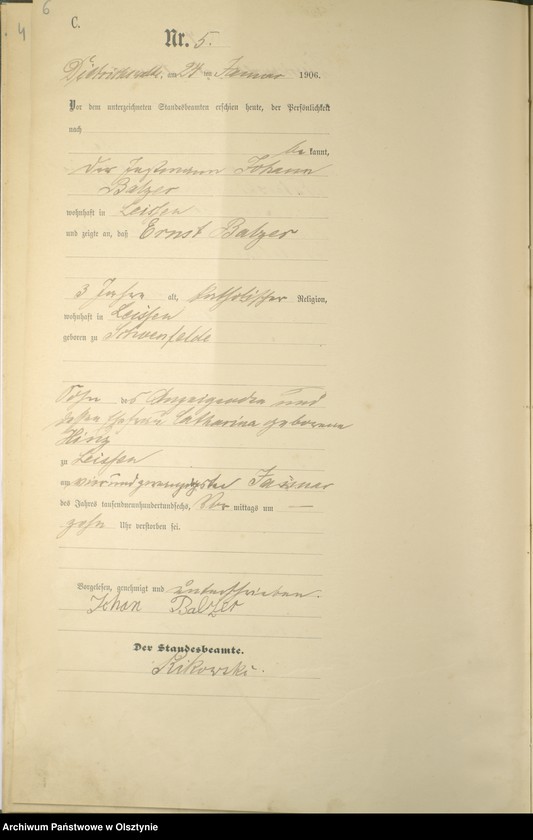 6
4
C.
Nr. 5.
Dietrichswalde, am 24 ten Januar 1906.
Vor dem unterzeichneten Standesbeamten erschien heute, der Persönlichkeit
nach
be kannt,
Der Instmann Johann
Balzer
wohnhaft in Leissen
und zeigte an, daß Ernst Balzer
3 Jahre alt, katholischer Religion,
wohnhaft in Leissen
geboren zu Schoenfelde
Sohn des Anzeigenden und
dessen Ehefrau Catharina geborene
Hinz
zu Leissen
am vierundzwanzigsten Januar
des Jahres tausendneunhundertundsechs, Vor mittags um —
zehn Uhr verstorben sei.
Vorgelesen, genehmigt und unterschrieben.
Johan Balzer
Der Standesbeamte.
Rikowski.
Archiwum Państwowe w Olsztynie